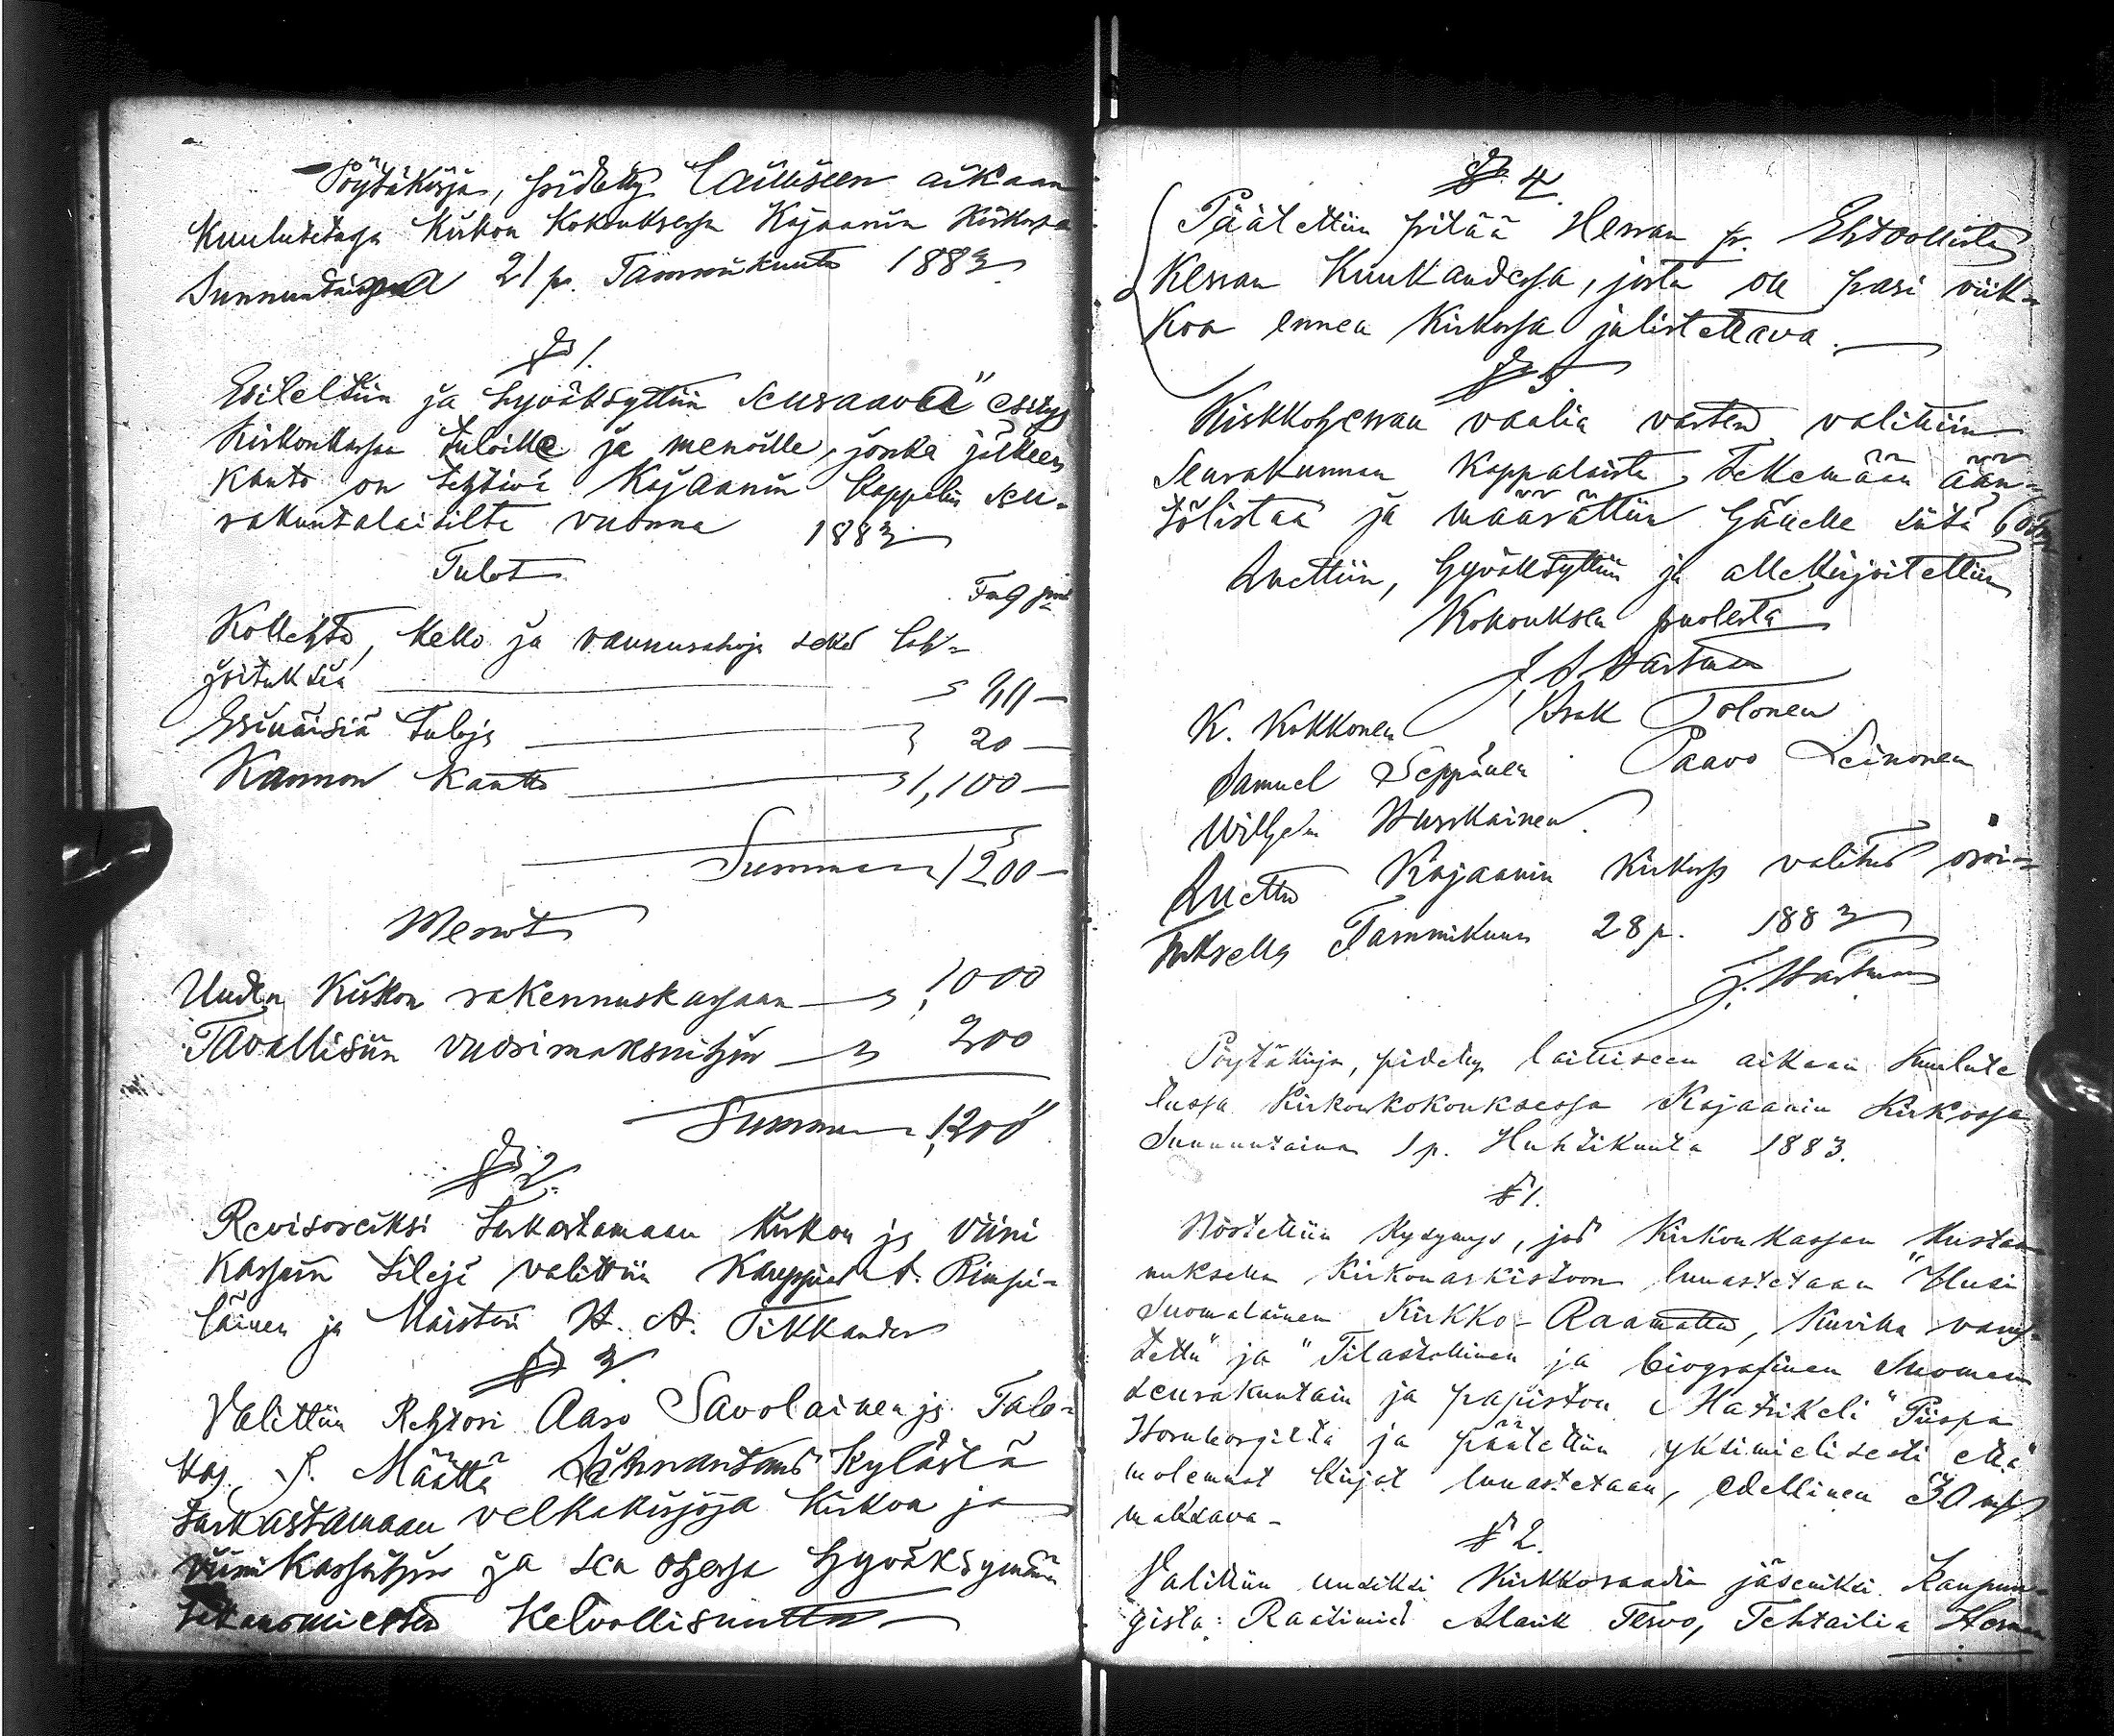 Pöytäkirja, pidetty lailliseen aikaan
kuulutetussa Kirkon Kokouksessa Kajaanin Kirkossa
Sunnuntaina 21 p. Tammikuuta 1883
§ 1.
Esiteltiin ja hyväksyttiin seuraava esitys
Kirkonkassan tuloille ja menoille, jonka jälkeen
kanto on tehtävä Kajaanin kappelin seu-
rakuntalaisilta vuonna 1883
Tulot
Smf pni
Kollehto, kello ja vaunurahoja sekä lah-
joituksia
Esinäisiä Tuloja 20 —
Kannon kautta 1,100 —
Summa 1200 —
Menot
Uuden Kirkon rakennuskassaan 1,000
Tavallisiin vuosimaksuihin 200
Summa 1,200
§ 2.
Revisoreiksi tarkastamaan Kirkon ja viini
kassain tilejä valittiin Kauppias A. Rimpi-
läinen ja Maisteri H. A. Tikkander
§ 3
Valittiin Rehtori Aaro Savolainen ja Talo-
kas J. Määttä kylästä
tarkastamaan velkakirjoja Kirkon ja
viinikassoihin ja sen ohessa hyväksymään
takausmiesten kelvollisuutta
§ 4.
Päätettiin pitää Herran p. Ehtoollista
kerran kuukaudessa, josta on pari viik-
koa ennen Kirkossa julistettava.
§ 5
Kirkkoherran vaalia varten valittiin
Seurakunnan kappalaista tekemään ään-
tölistaa ja määrättiin hänelle siitä
Luettiin, hyväksyttiin ja allekirjoitettiin
Kokouksen puolesta
J Hartman
K. Kokkonen Isak Tolonen
Samuel Seppänen Paavo Leinonen
Wilhelm Huuskainen.
Luettu Kajaanin Kirkossa valitus osoi-
tuksella Tammikuun 28 p. 1883
J. Hartman
Pöytäkirja, pidetty lailliseen aikaan kuulute
tussa Kirkonkokouksessa Kajaanin Kirkossa
Sunnuntaina 1 p. Huhtikuuta 1883.
§ 1.
Nostettiin kysymys, jos Kirkonkassan kustan
nuksella Kirkonarkistoon lunastetaan "Uusi
Suomalainen Kirkko-Raamattu, kuvilla varus-
tettu" ja "Tilastollinen ja biografinen Suomen
seurakuntain ja papiston Matrikeli" Piispa
Hornborgilta ja päätettiin yksimielisesti että
molemmat kirjat lunastetaan, edellinen 30 mk
maksava.
§ 2.
Valittiin uusiksi Kirkkoraadin jäseniksi Kaupun-
gista: Raatimies Alarik Tervo, Tehtailia Herman